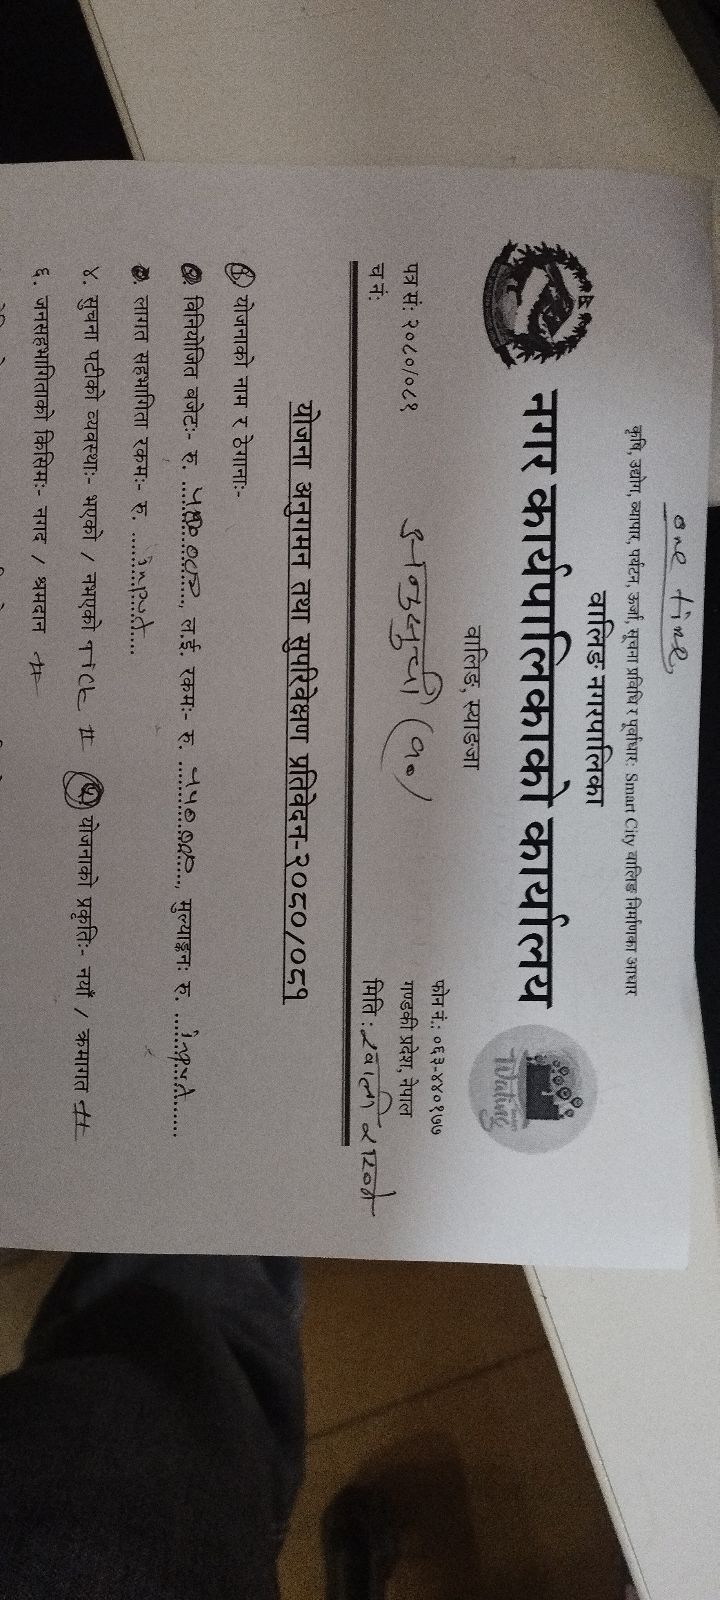 one time
कृषि, उद्योग, व्यापार, पर्यटन, ऊर्जा, सूचना प्रविधि र पूर्वाधार: Smart City वालिङ निर्माणका आधार
वालिङ नगरपालिका
नगर कार्यपालिकाको कार्यालय
Waling
वालिङ, स्याङजा
फोन नं.: ०६३-४४०१७७
पत्र सं: २०८०/०८१
अनुसुची (१०)
गण्डकी प्रदेश, नेपाल
च नं:
मिति : खाली राख्ने
योजना अनुगमन तथा सुपरिवेक्षण प्रतिवेदन-२०८०/०८१
योजनाको नाम र ठेगानाः-
विनियोजित बजेटः- रु. ...................., ल.ई. रकमः- रु. ५५०,०००, मुल्याङ्कनः रु. ...input...
लागत सहभागिता रकमः- रु. ...input...
४. सुचना पटीको व्यवस्थाः- भएको / नभएको TICK # ५ योजनाको प्रकृतिः- नयाँ / क्रमागत #
६. जनसहभागिताको किसिमः- नगद / श्रमदान #